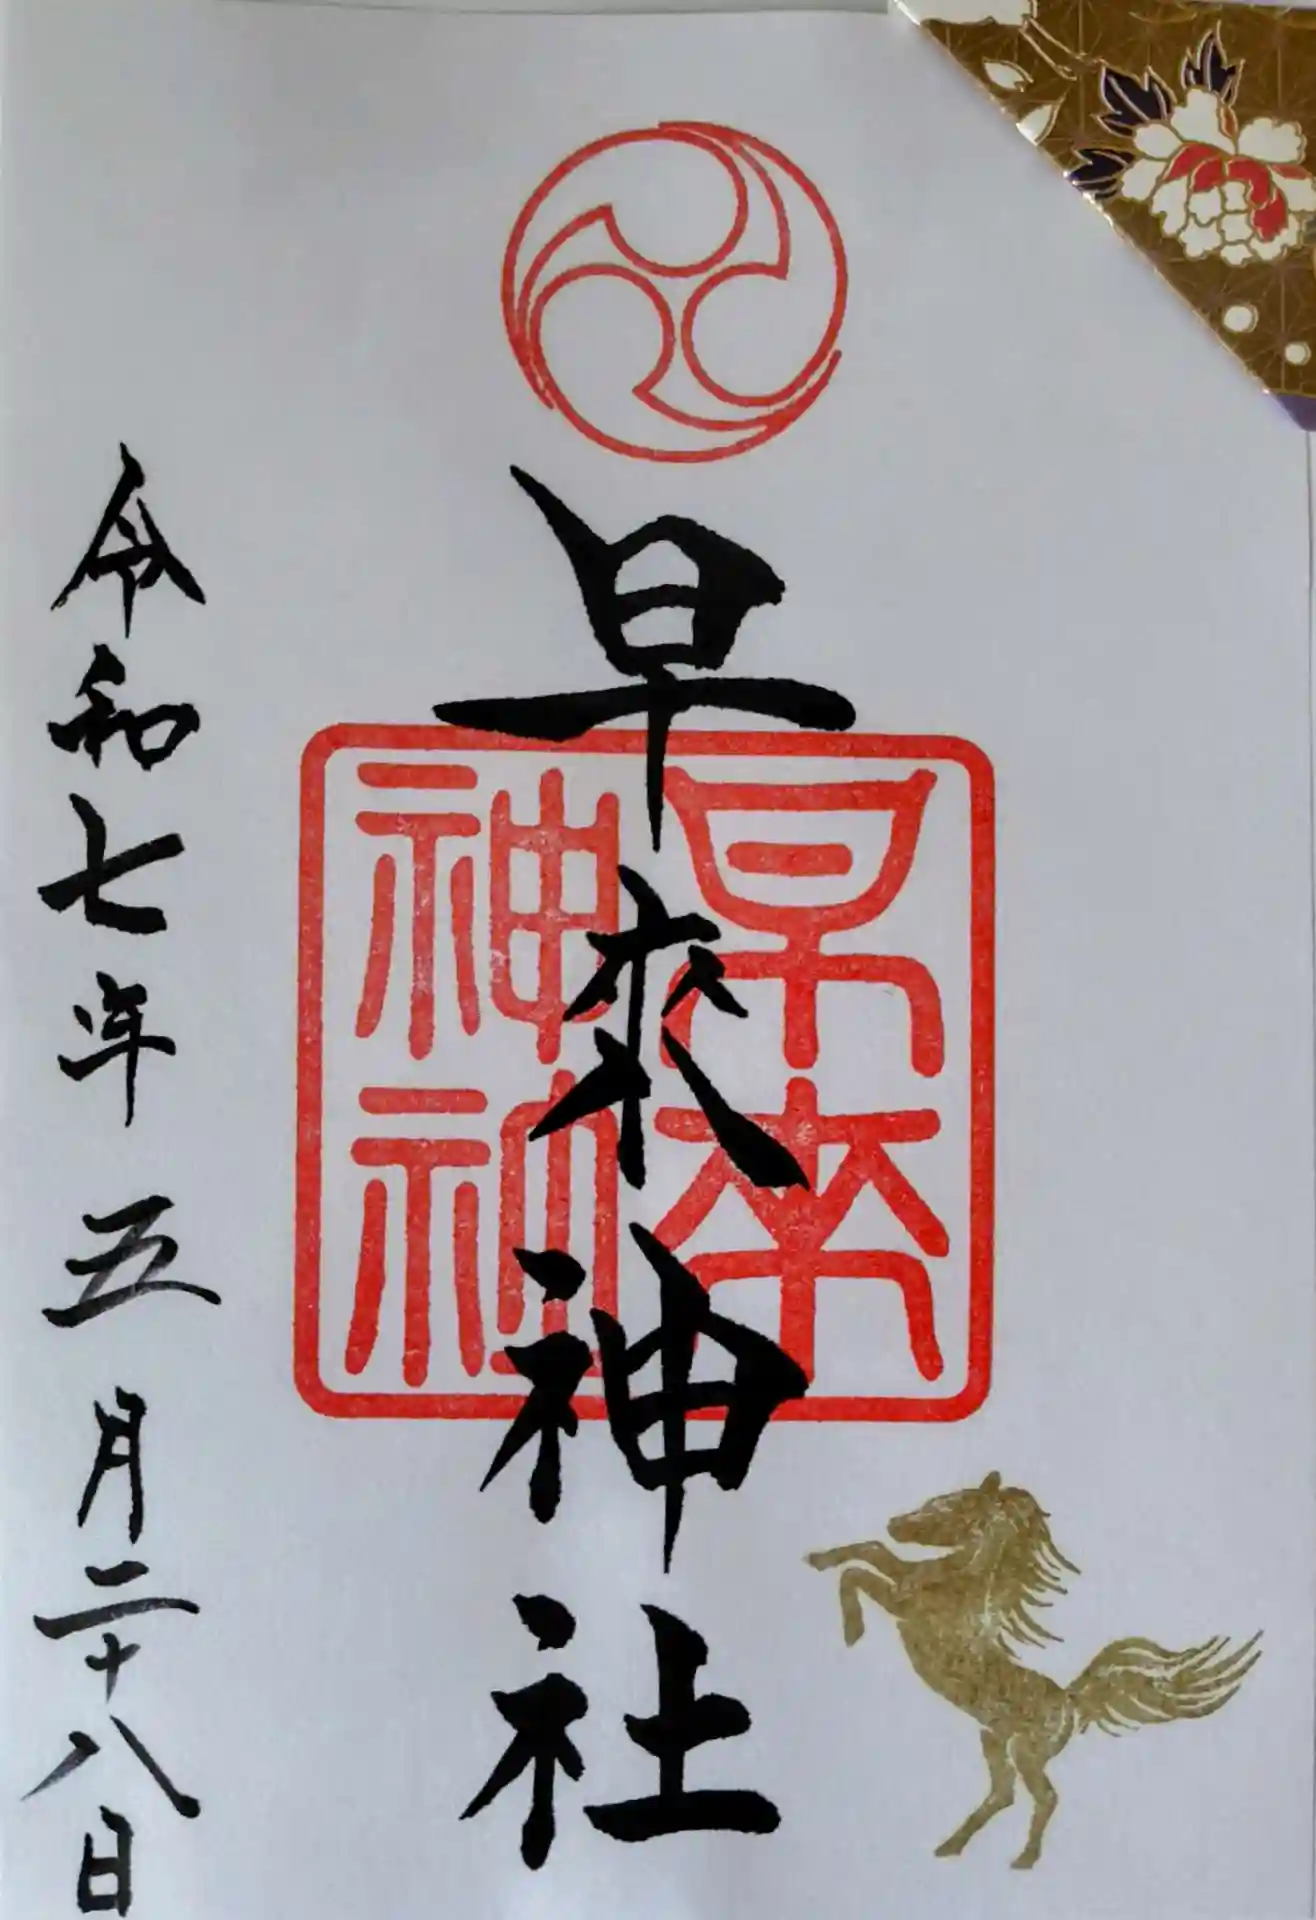 早来神社
早来
神社
令和七年五月二十八日